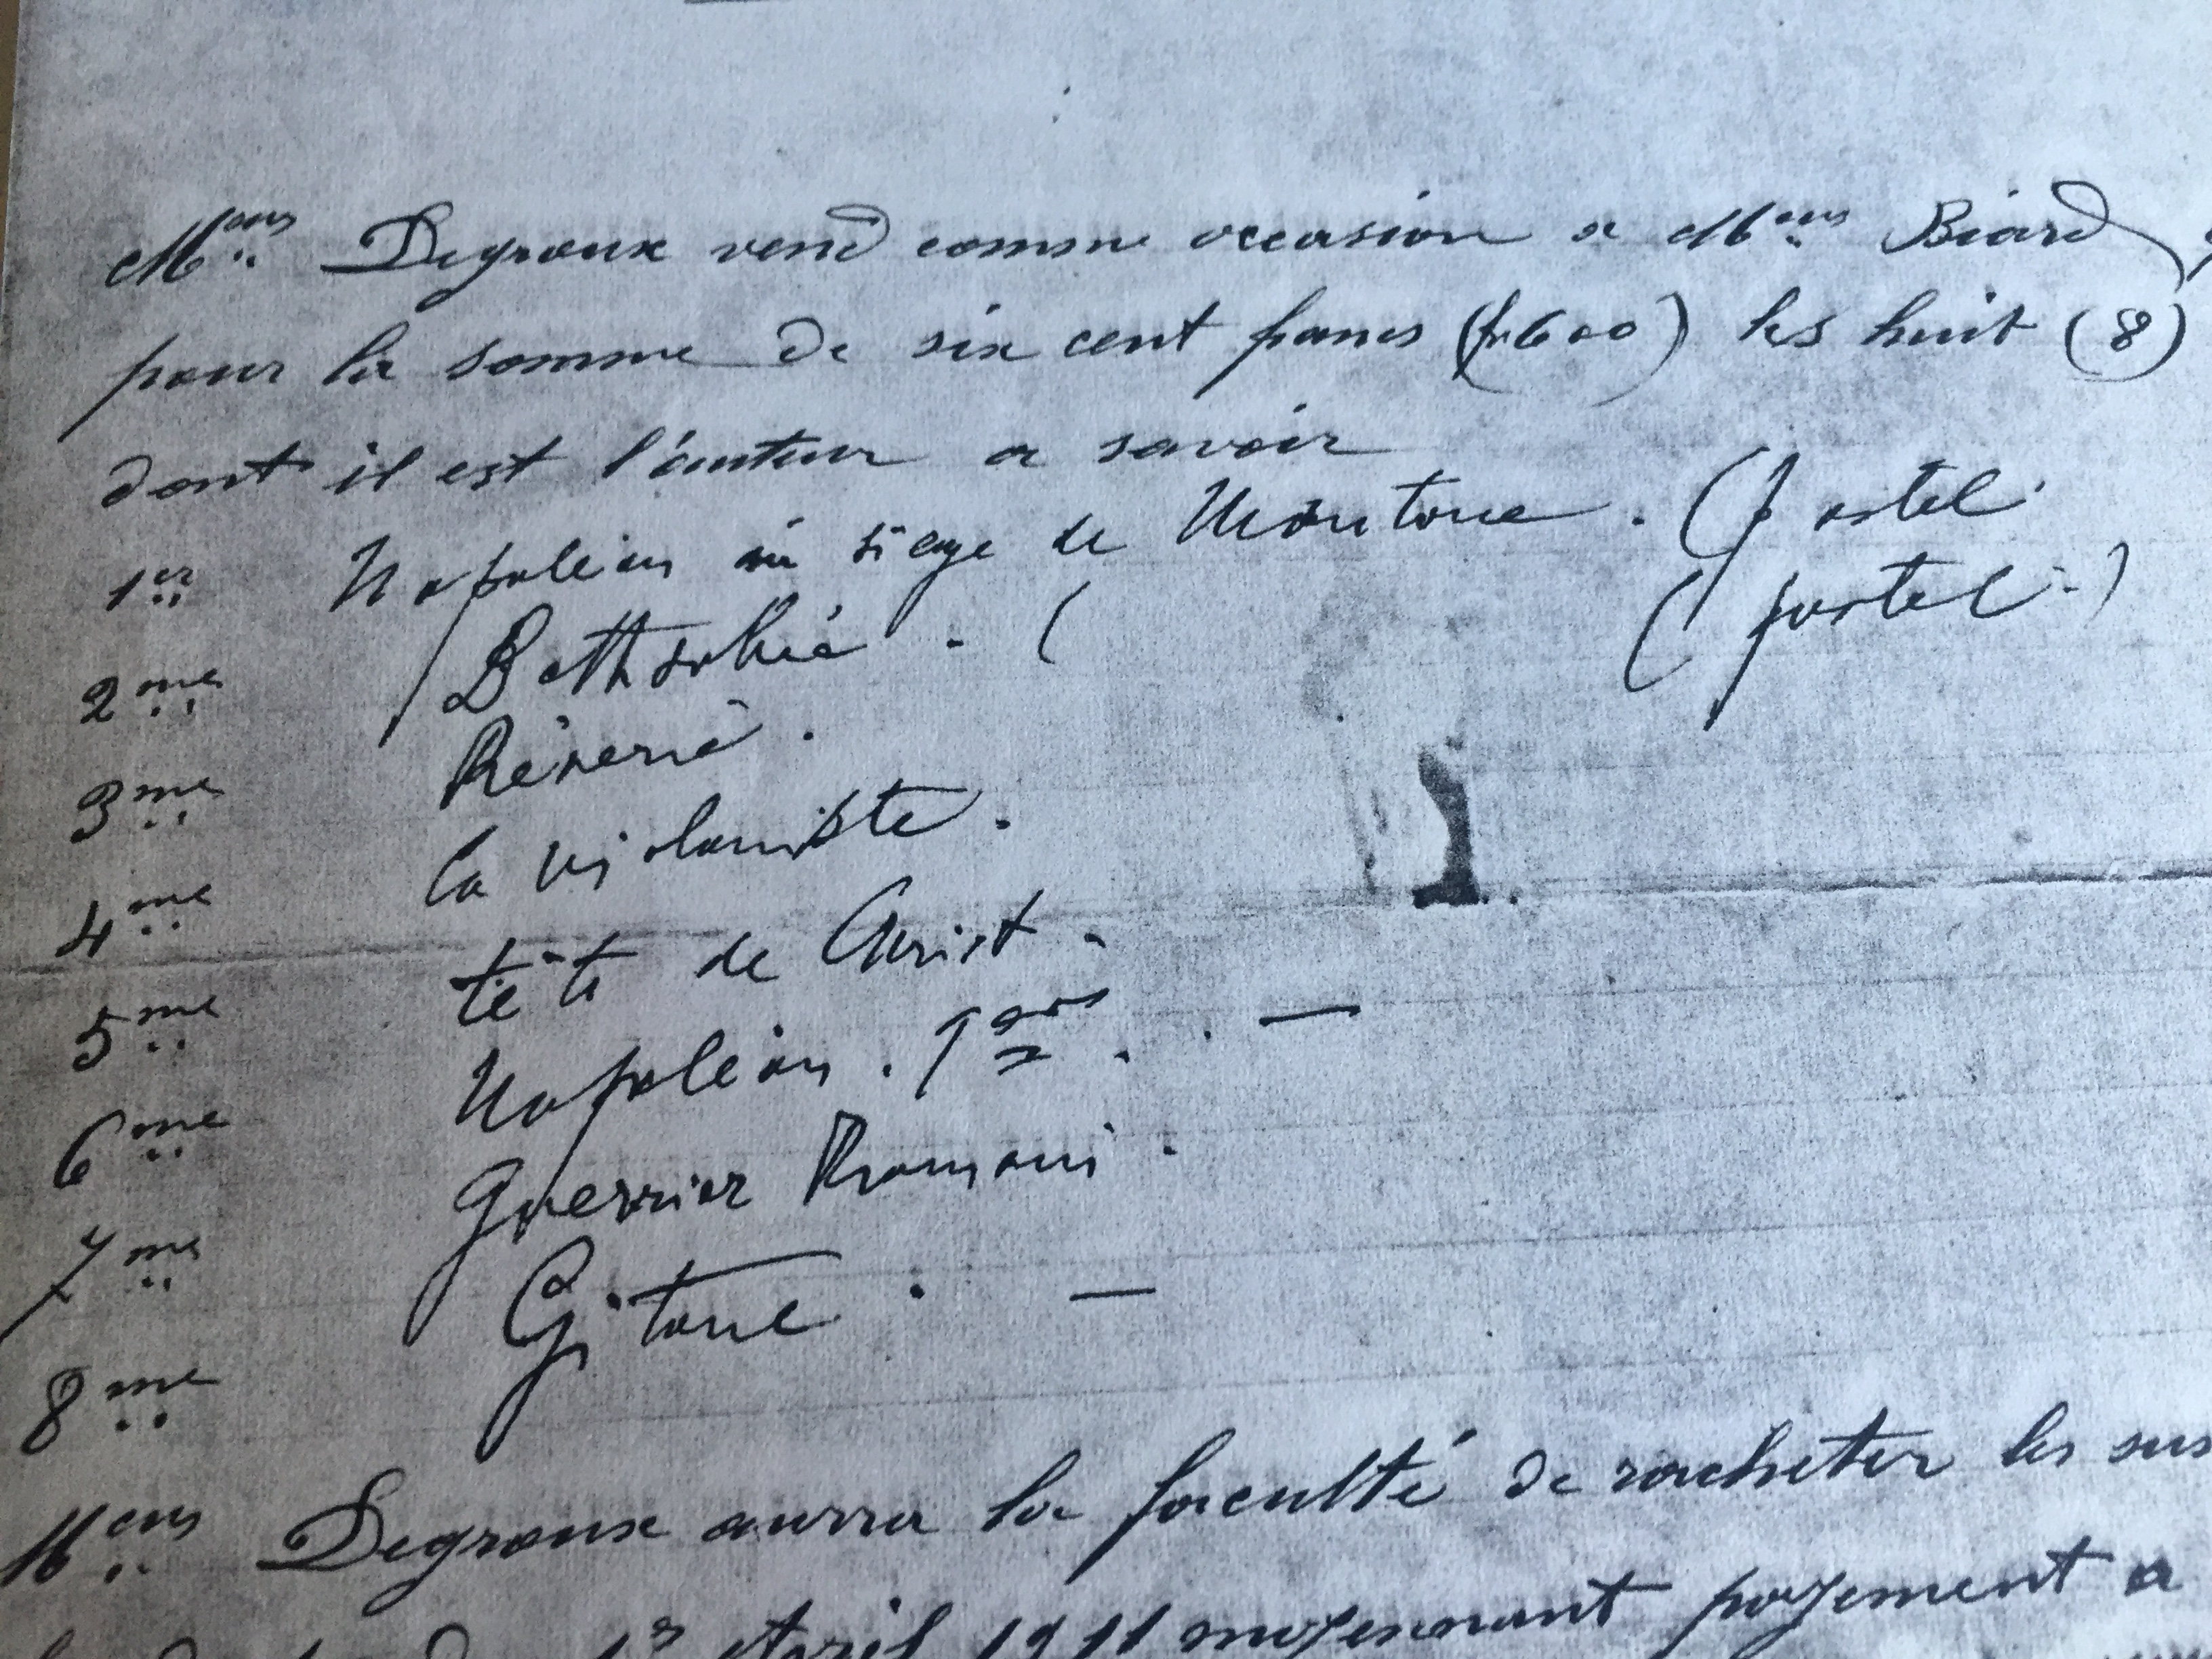 Mons Degroux vend comme occasion a Mons Biard
pour la somme de six cent francs (fr 600) les huit (8)
dont il est l'auteur a savoir
1er Napoléon au siège de . (Pastel
2me Bethsabée . ( ( pastel . )
3me Rêverie .
4me la violoniste .
5me tête de Christ .
6me Napoléon . . —
7me Guerrier Romain .
8me Gitane . —
Mons Degroux aurra la faculté de racheter les sus
1r Avril 1911 moyennant payement a